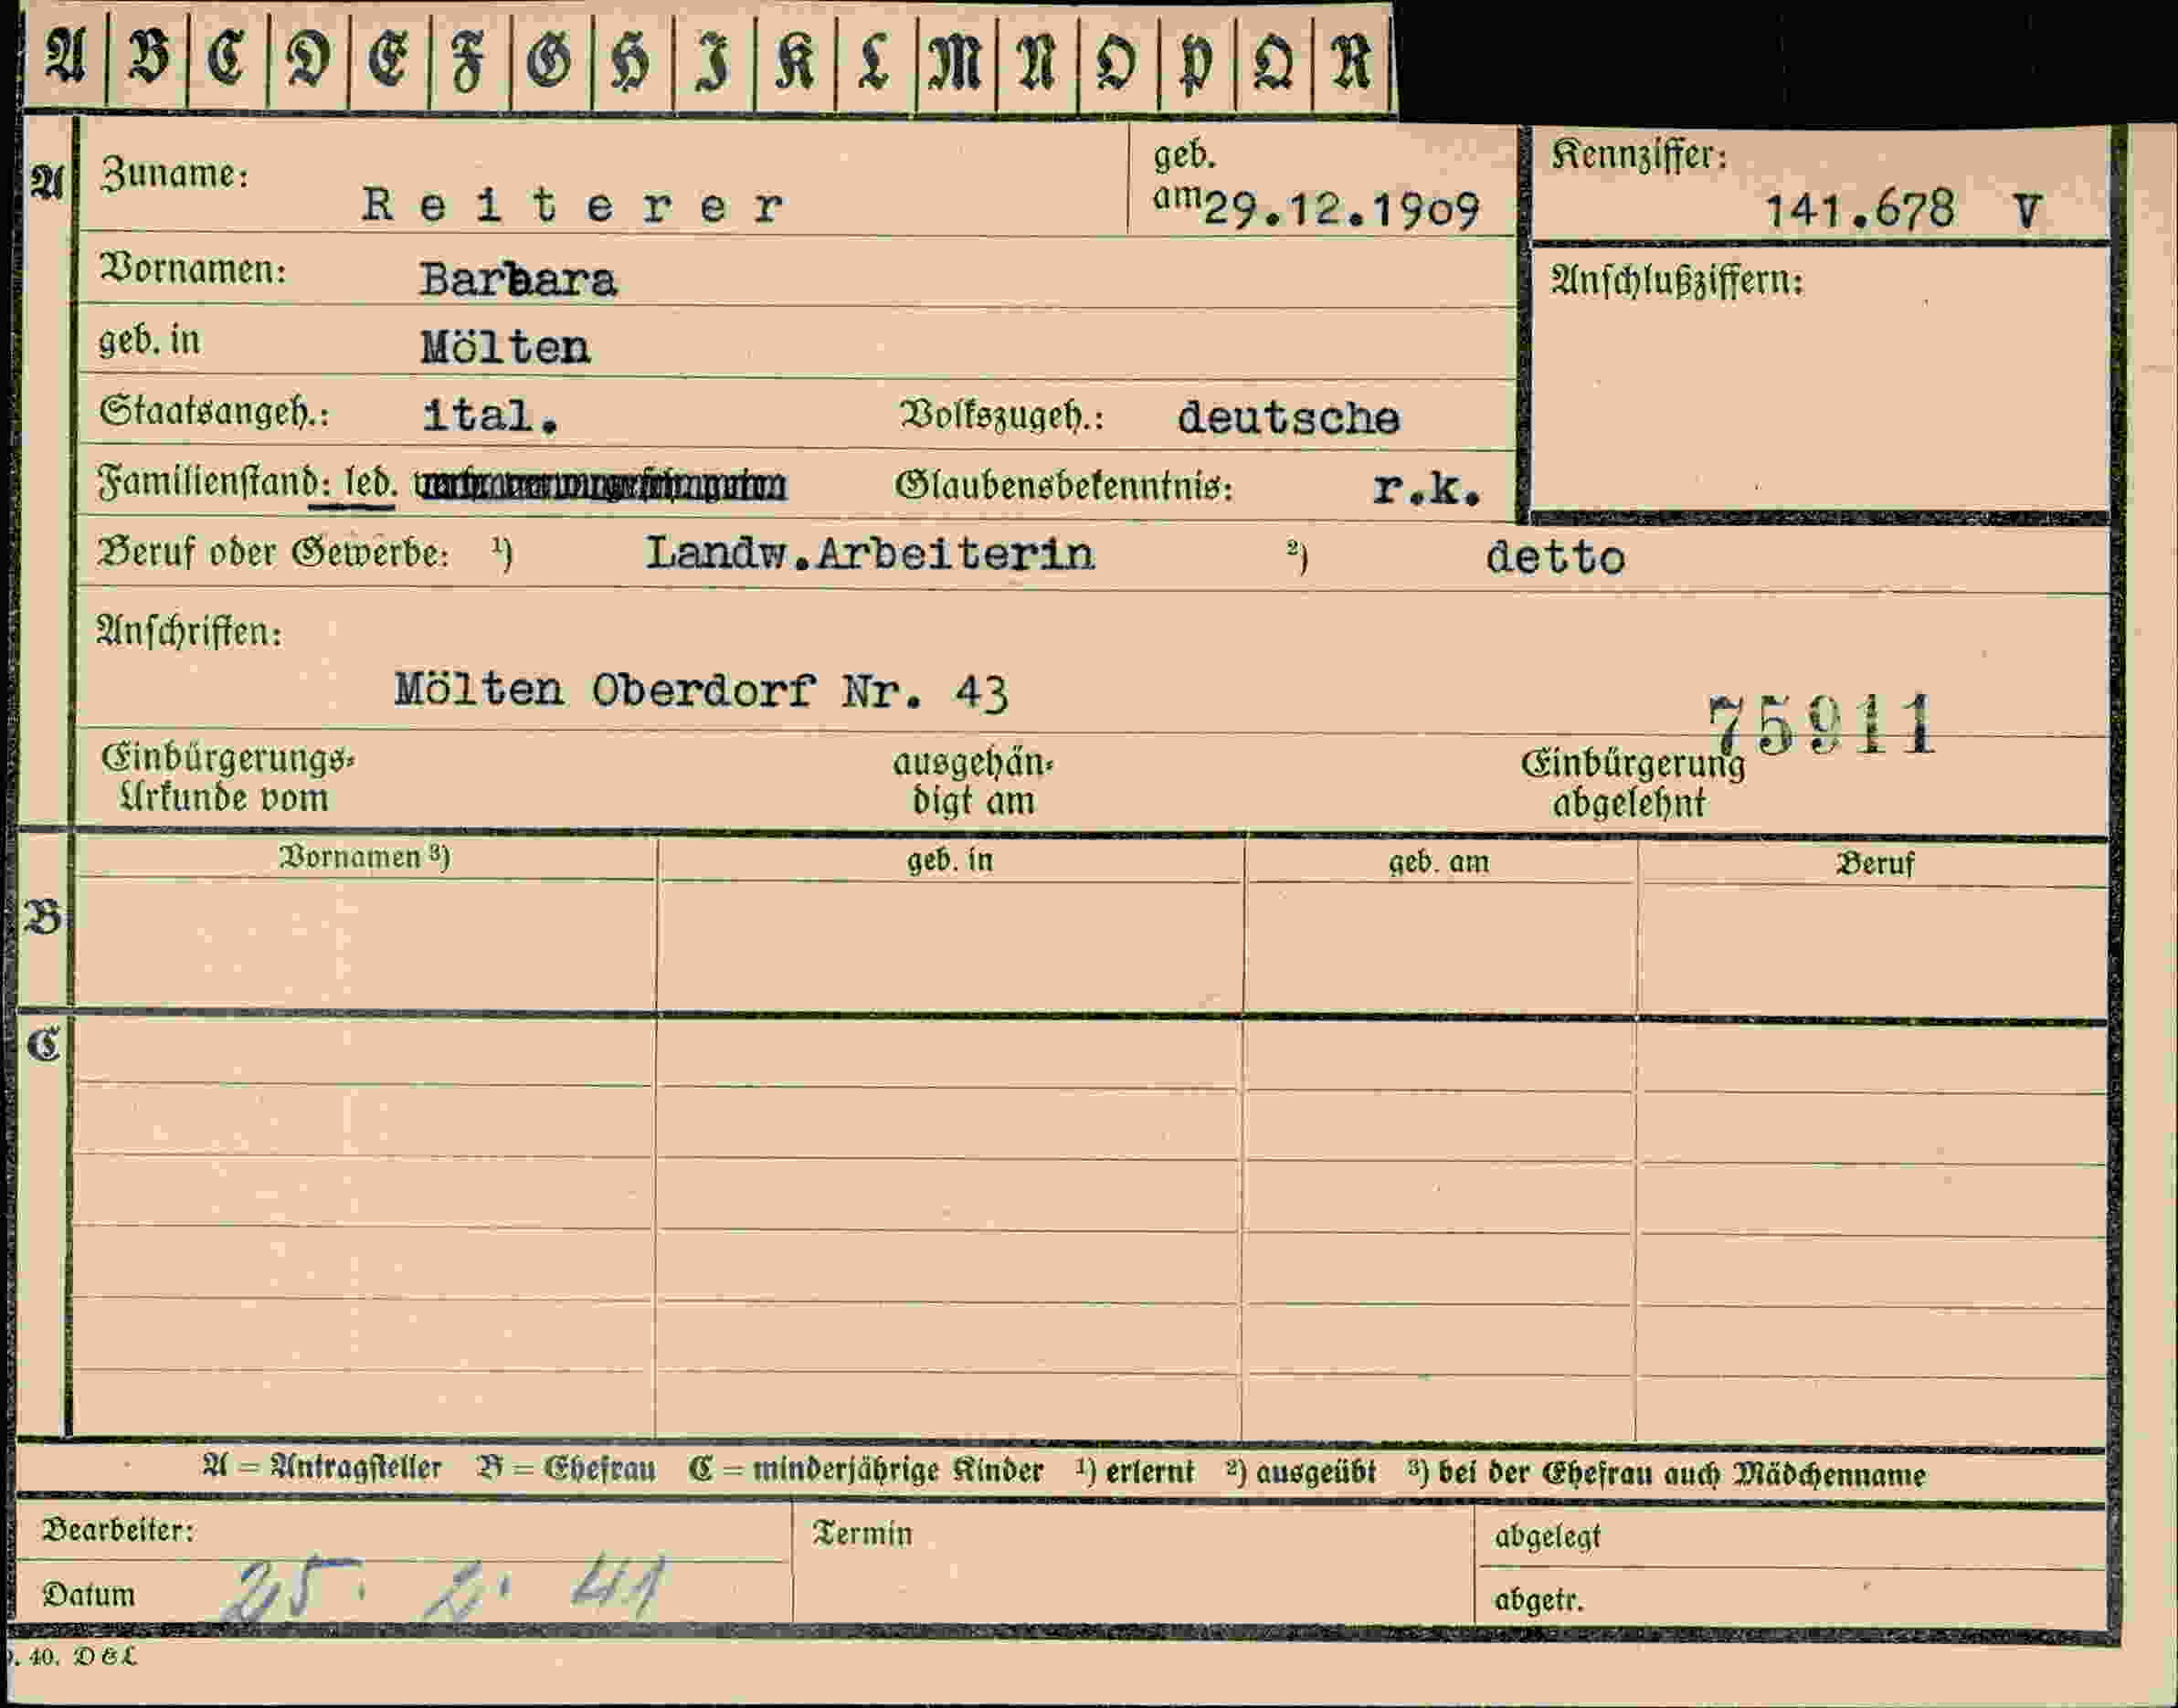 A B C D E F G H I K L M N O P Q R
A
Zuname: Reiterer
geb. am 29.12.1909
Kennziffer: 141.678 V
Vornamen: Barbara
Anschlußziffern:
geb. in Mölten
Staatsangeh.: ital. Volkszugeh.: deutsche
Familienstand: led. Glaubensbekenntnis: r.k.
Beruf oder Gewerbe: ¹) Landw.Arbeiterin ²) detto
Anschriften:
Mölten Oberdorf Nr. 43
75911
Einbürgerungs- ausgehän- Einbürgerung
Urkunde vom digt am abgelehnt
Vornamen ³) geb. in geb. am Beruf
B
C
A = Antragsteller B = Ehefrau C = minderjährige Kinder ¹) erlernt ²) ausgeübt ³) bei der Ehefrau auch Mädchenname
Bearbeiter: Termin abgelegt
Datum 25. 2. 41 abgetr.
. 40. D&L